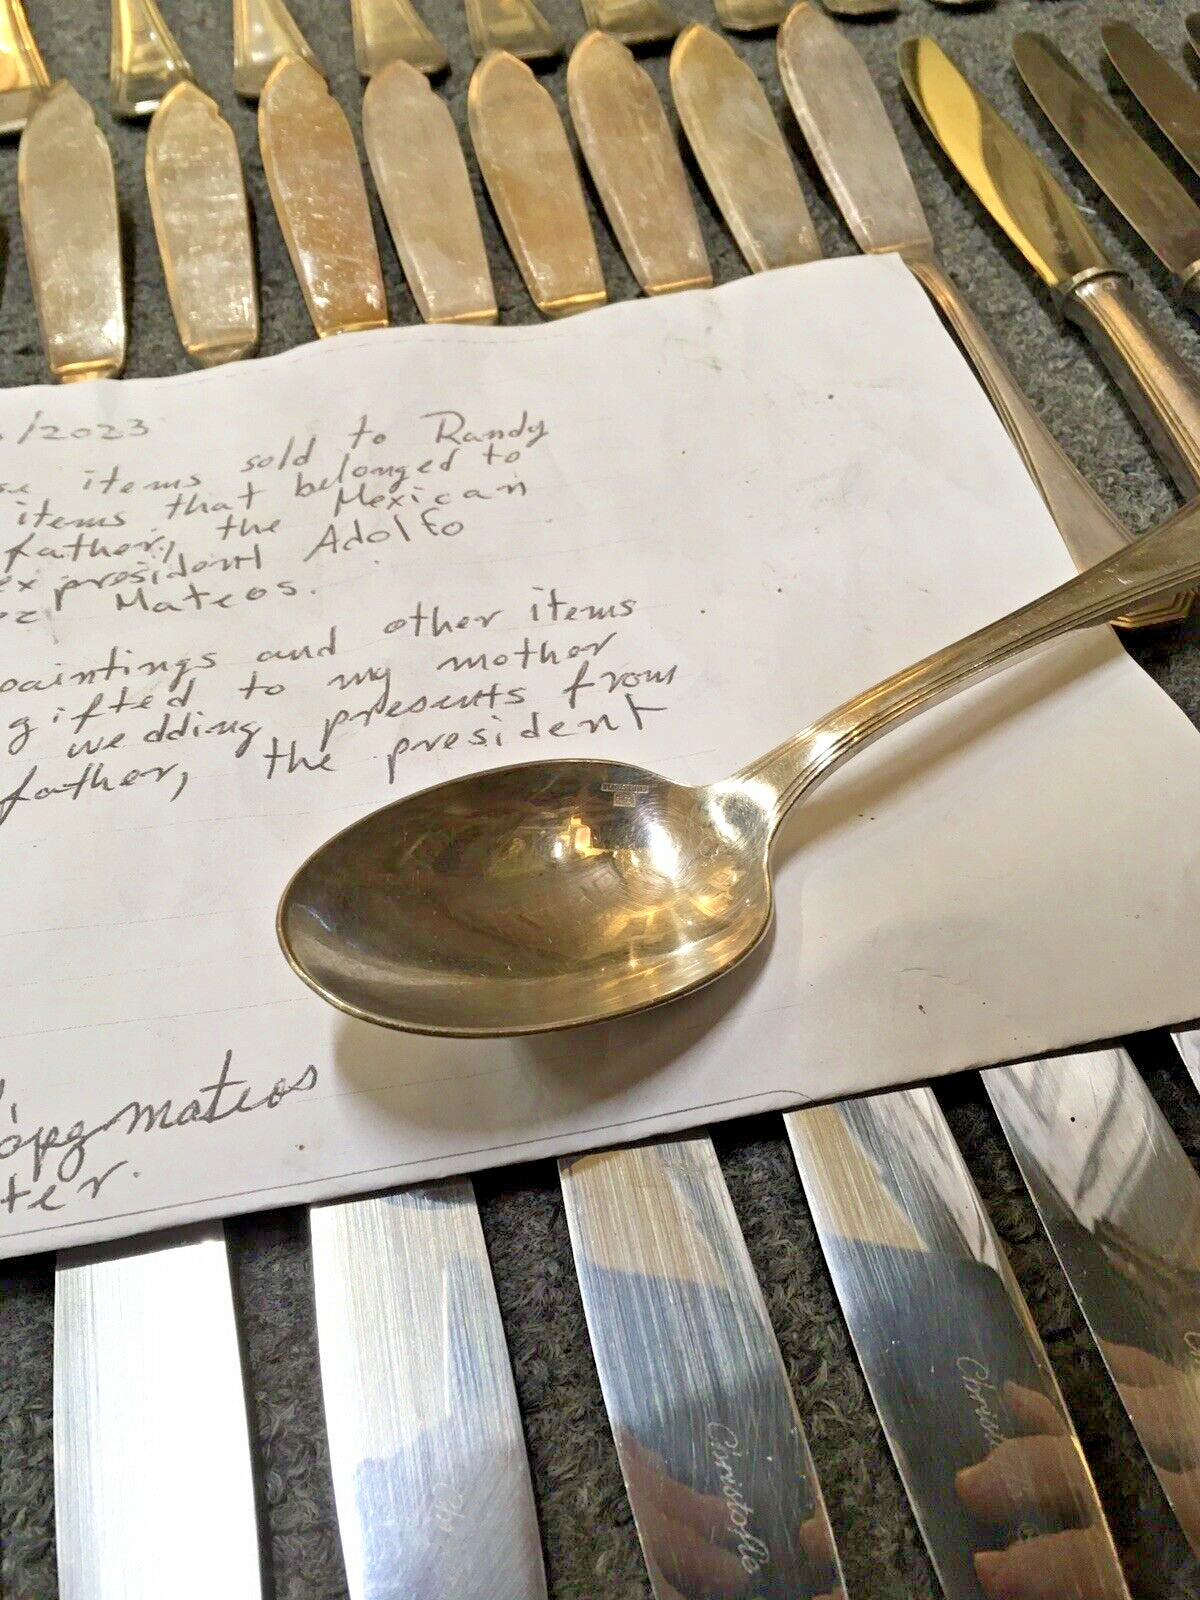 /2023
items sold to Randy
items that belonged to
father, the Mexican
ex president Adolfo
Mateos.
paintings and other items
gifted to my mother
wedding presents from
father, the president
Mateos
Christofle